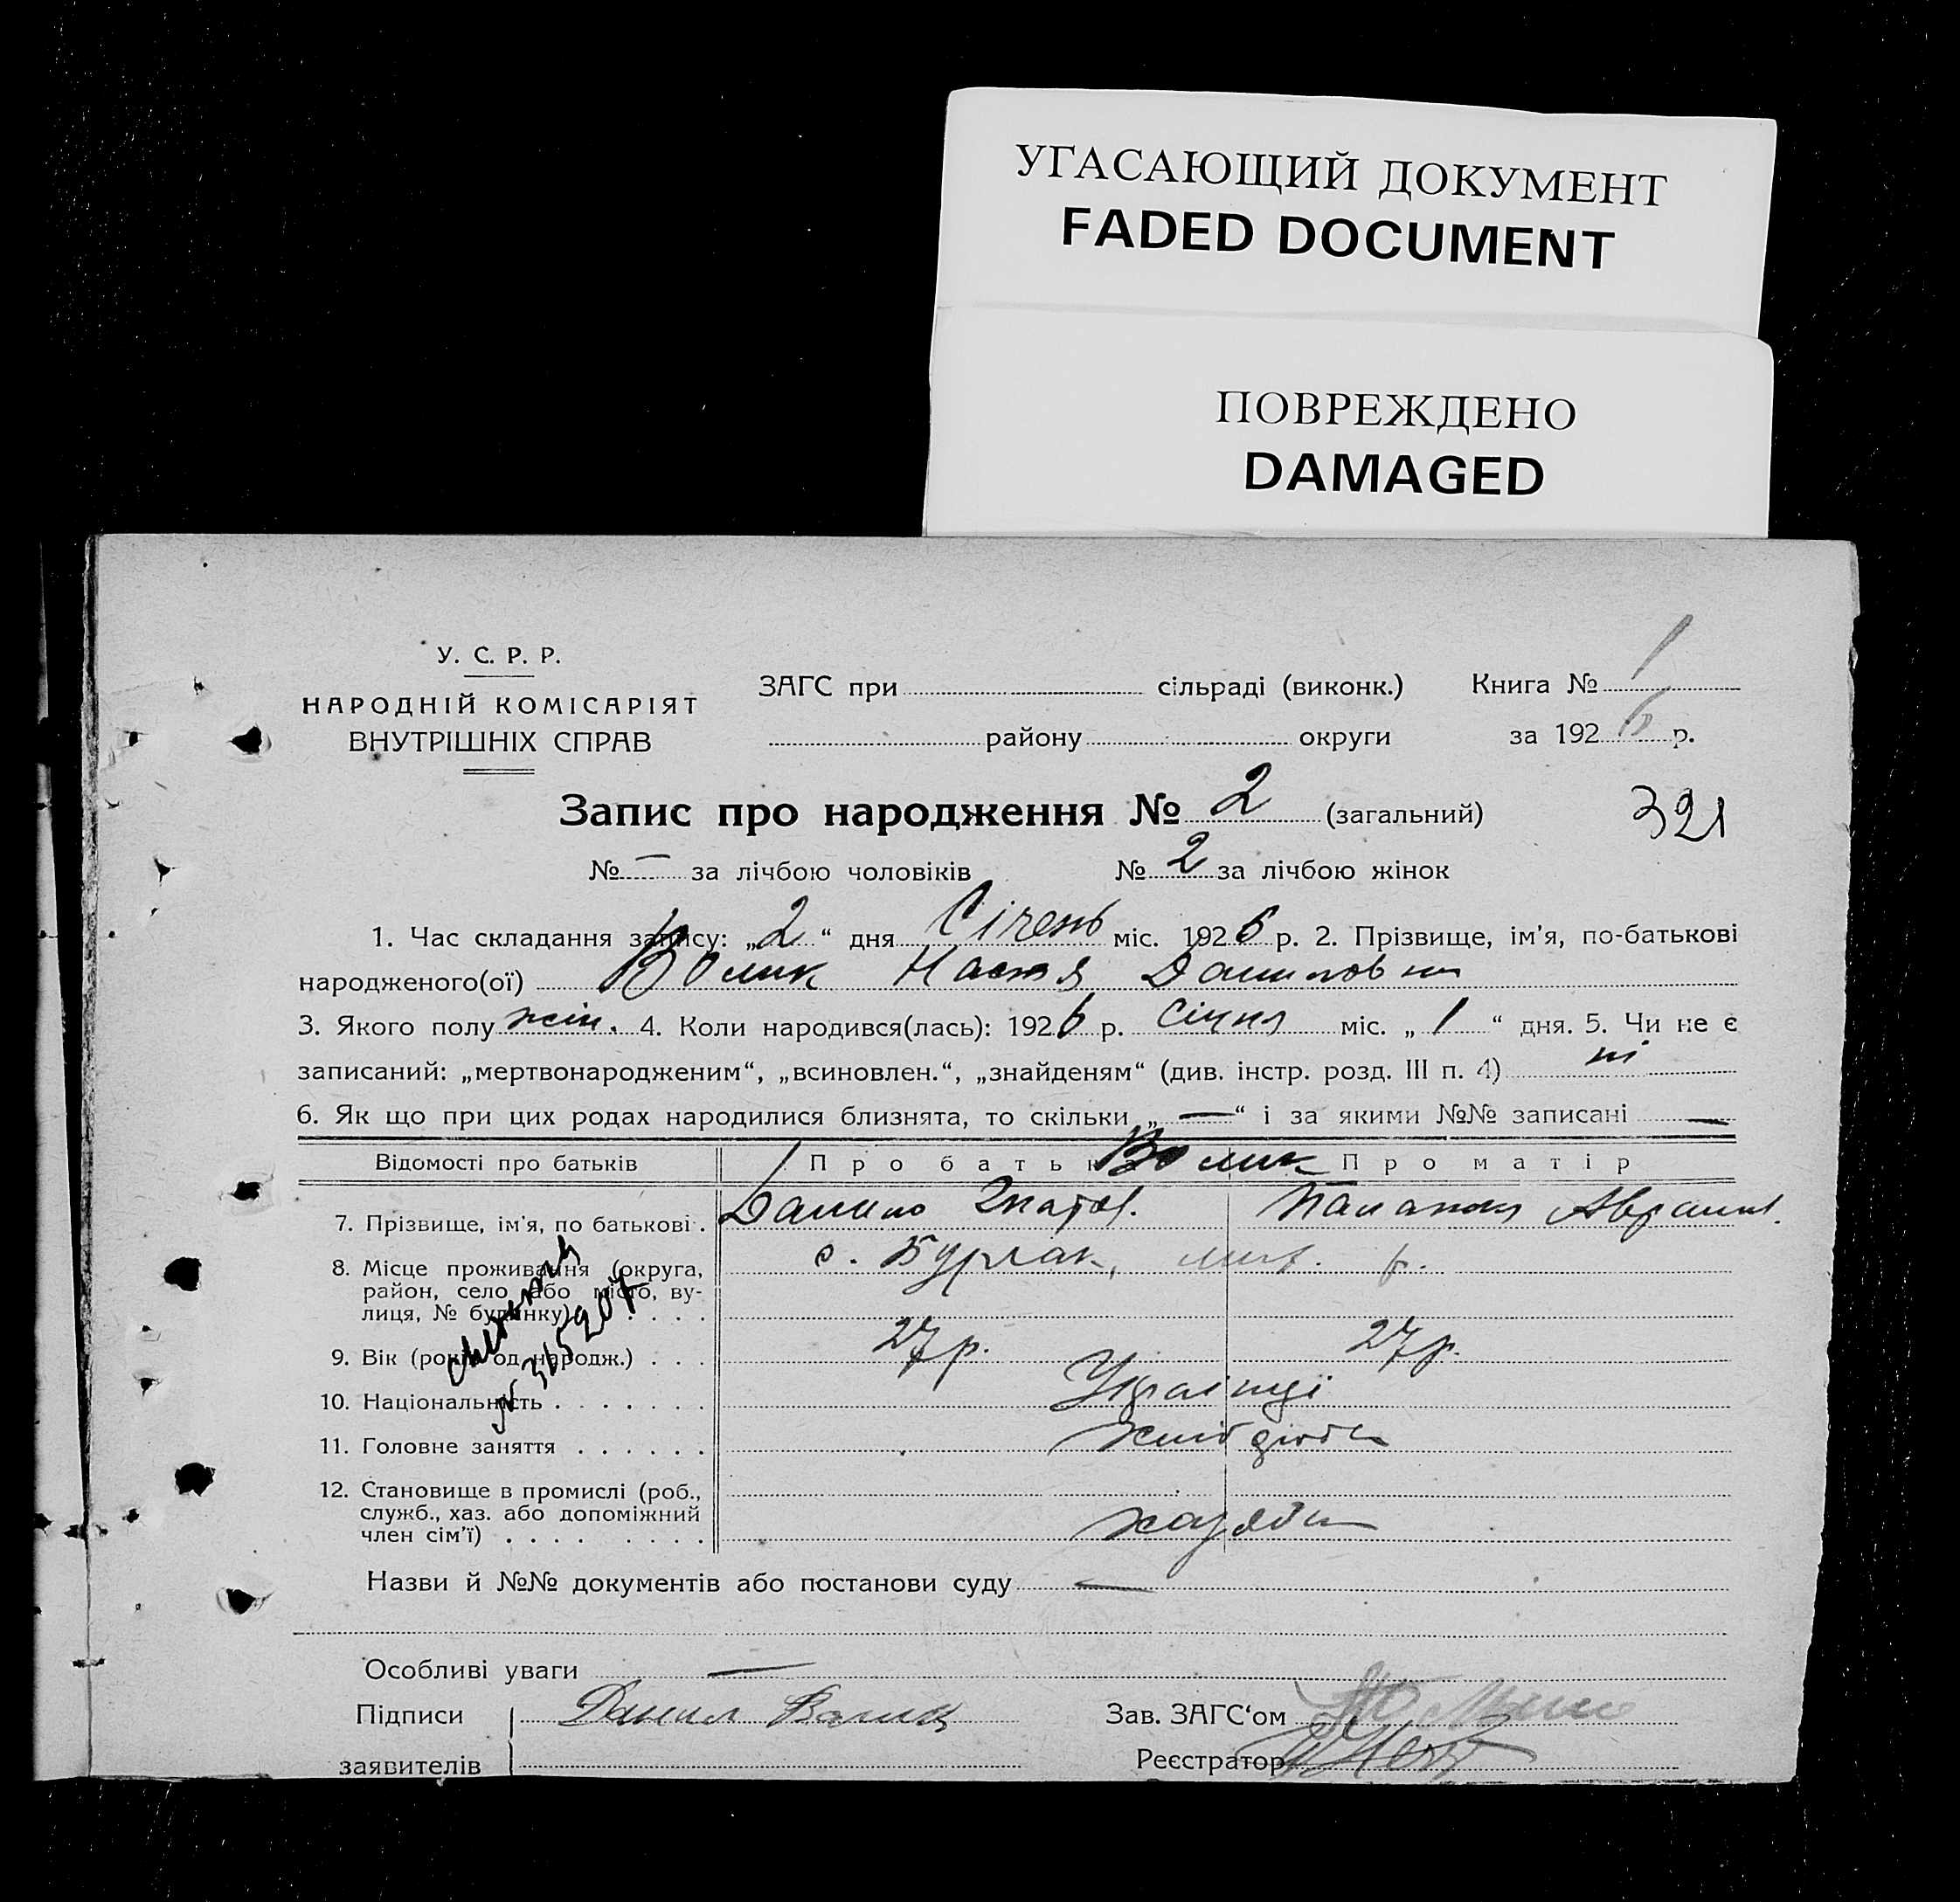 УГАСАЮЩИЙ ДОКУМЕНТ
FADED DOCUMENT
ПОВРЕЖДЕНО
DAMAGED
У. С. Р. Р.
НАРОДНІЙ КОМІСАРІЯТ
ВНУТРІШНІХ СПРАВ
ЗАГС при сільраді (виконк.)
району округи
Книга № 1
за 1926 р.
Запис про народження № 2 (загальний)
321
№ — за лічбою чоловіків № 2 за лічбою жінок
1. Час складання запису: „2“ дня Січень міс. 1926 р. 2. Прізвище, ім'я, по-батькові
народженого(ої) Волик Настя Даниловна
3. Якого полу жін. 4. Коли народився(лась): 1926 р. Січня міс. „1“ дня. 5. Чи не є
записаний: „мертвонародженим“, „всиновлен.“, „знайденям“ (див. інстр. розд. III п. 4) ні
6. Як що при цих родах народилися близнята, то скільки „—“ і за якими №№ записані —
Відомості про батьків Про батька Волик Про матір
7. Прізвище, ім'я, по батькові . Данило Гнатов.
8. Місце проживання (округа,
район, село або місто, ву-
лиця, № будинку) . . . .
с. Бурлак,
9. Вік (років од народж.) . . . 27 р. 27 р.
10. Національність . . . . . . . Українці
11. Головне заняття . . . . . . хлібороби
12. Становище в промислі (роб.,
служб., хаз. або допоміжний
член сім'ї) . . . . . . . .
№ 315207
Назви й №№ документів або постанови суду —
Особливі уваги —
Підписи
заявителів
Данил Волик
Зав. ЗАГС'ом
Реєстратор